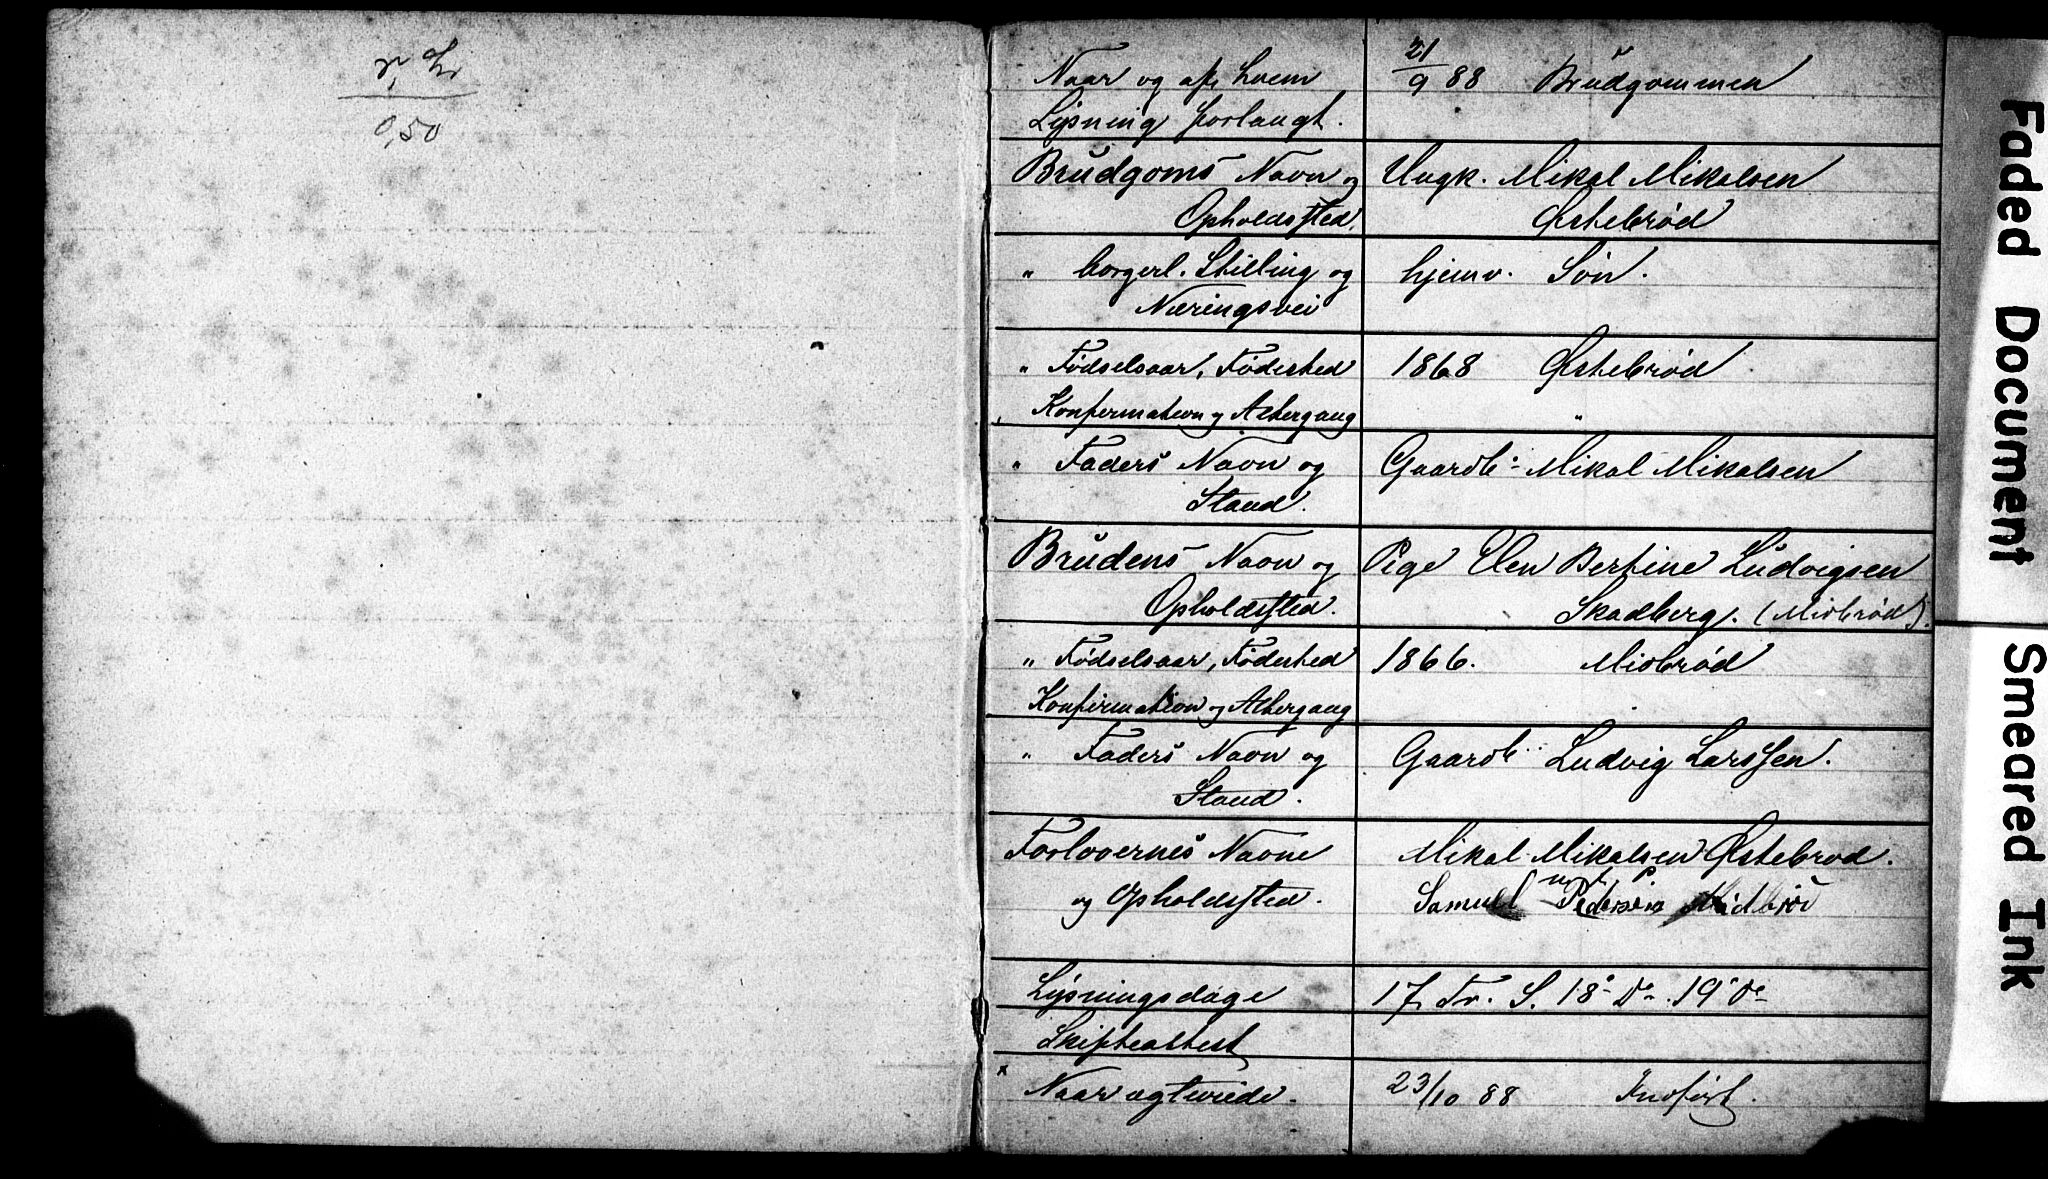 0,50
Naar og af hvem 21/9 88 Brudgommen
Lysning forlangt.
Brudgoms Navn og Ungk. Mikal Mikalsen
Opholdssted. Østebrød
" borgerl. Stilling og hjemv. Søn.
Næringsvei
" Fødselsaar, Fødested 1868 Østebrød
Konfirmation og Altergang "
" Faders Navn og Gaardb. Mikal Mikalsen
Stand.
Brudens Navn og Pige Elen Bertine Ludvigsen
Opholdssted. Skadberg. (Midbrød).
" Fødselsaar, Fødested 1866. Midbrød
Konfirmation og Altergang
" Faders Navn og Gaardb. Ludvig Larssen.
Stand.
Forlovernes Navne Mikal Mikalsen Østebrød.
og Opholdssted. Samuel Pedersen Midbrød
Lysningsdage 17 Tr. S. 18 D. 19 D.
Skifteattest
Naar egteviede. 23/10 88 Indført.
Faded Document
Smeared Ink